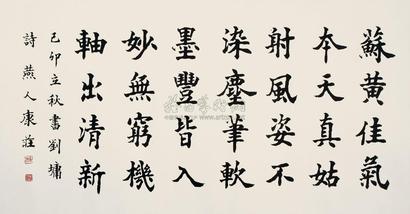 蘇黃佳氣
本天真姑
射風姿不
染塵筆軟
墨豐皆入
妙無窮機
軸出清新
己卯立秋書劉墉
詩燕人康莊